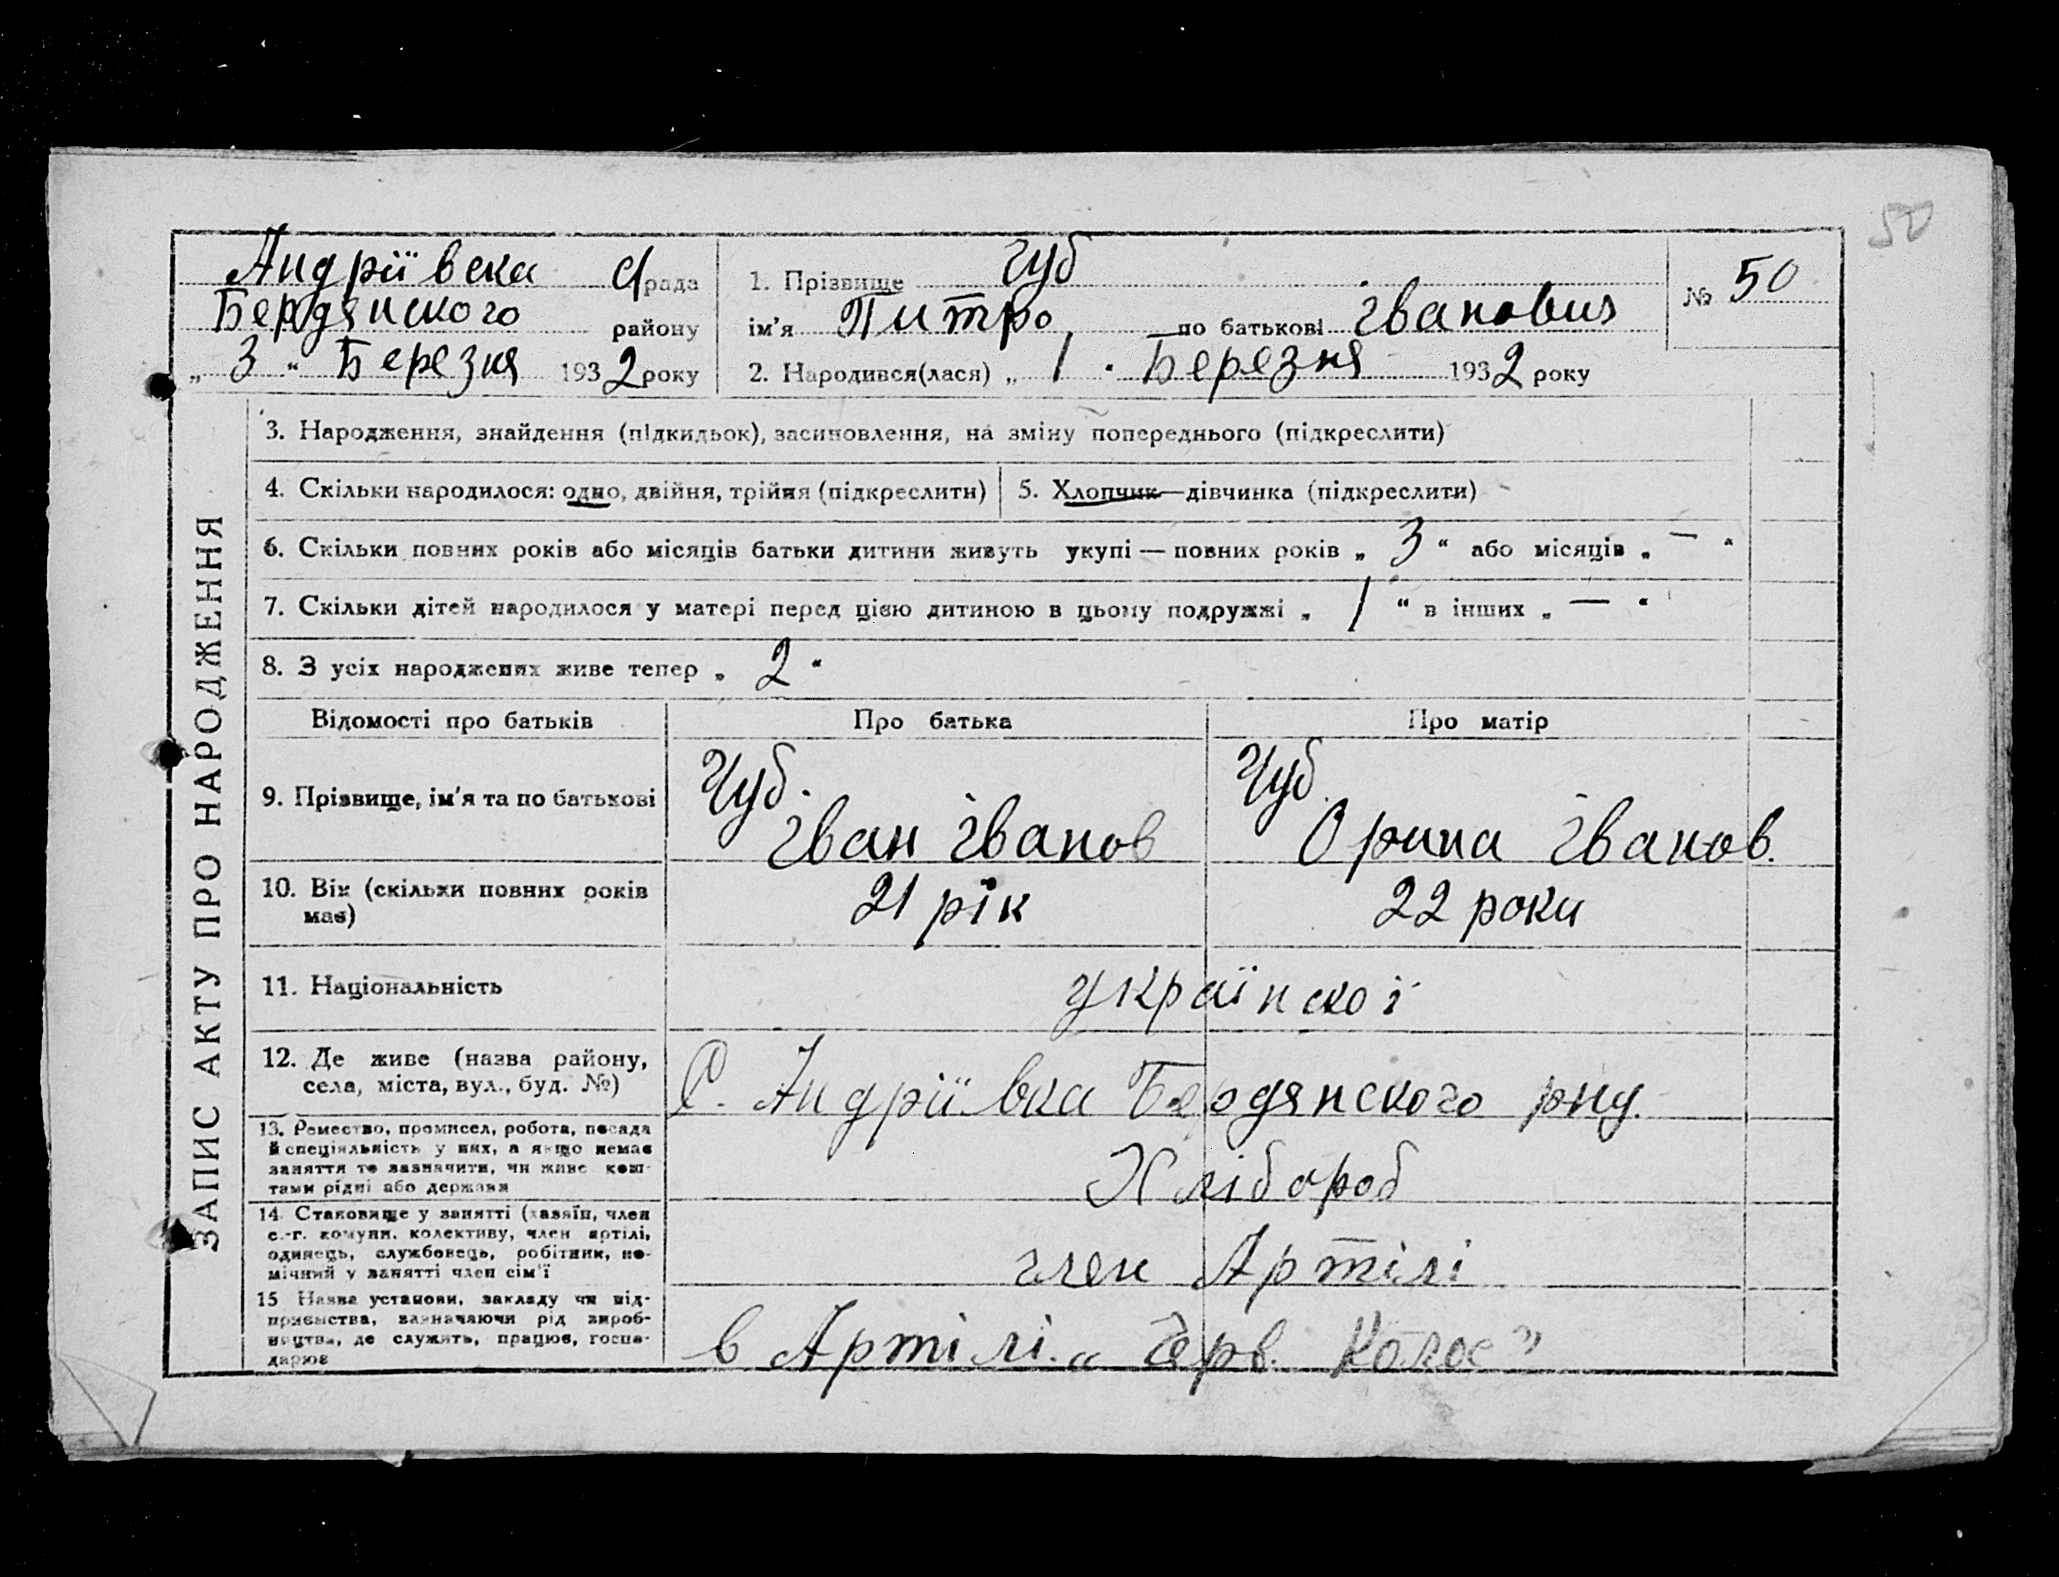 50
Андріївска С/рада
Бердянского району
„ 3 “ Березня 1932 року
1. Прізвище Чуб
ім'я Питро по батькові Іванович
2. Народився(лася) „ 1 “ Березня 1932 року
№ 50
ЗАПИС АКТУ ПРО НАРОДЖЕННЯ
3. Народження, знайдення (підкидьок), засиновлення, на зміну попереднього (підкреслити)
4. Скільки народилося: одно, двійня, трійня (підкреслити)
5. Хлопчик—дівчинка (підкреслити)
6. Скільки повних років або місяців батьки дитини живуть укупі — повних років „ 3 “ або місяців „ — “
7. Скільки дітей народилося у матері перед цією дитиною в цьому подружжі „ 1 “ в інших „ — “
8. З усіх народжених живе тепер „ 2 “
Відомості про батьків Про батька Про матір
9. Прізвище, ім'я та по батькові
Чуб.
Іван Іванов
Чуб
Орина Іванов.
10. Вік (скільки повних років
має)
21 рік
22 роки
11. Національність
українскоі
12. Де живе (назва району,
села, міста, вул., буд. №)
С. Андріївка Бердянского рну.
13. Ремество, промисел, робота, посада
й спеціяльність у них, а якщо немає
заняття то зазначити, чи живе кош-
тами рідні або держави
Хлібороб
14. Становище у занятті (хазяїн, член
с.-г. комуни, колективу, член артілі,
одинець, службовець, робітник, по-
мічний у занятті член сім'ї
член Артілі
15 Назва установи, закладу чи під-
приємства, зазначаючи рід вироб-
ництва, де служить, працює, госпо-
дарює
в Артілі „ Черв. Колос”